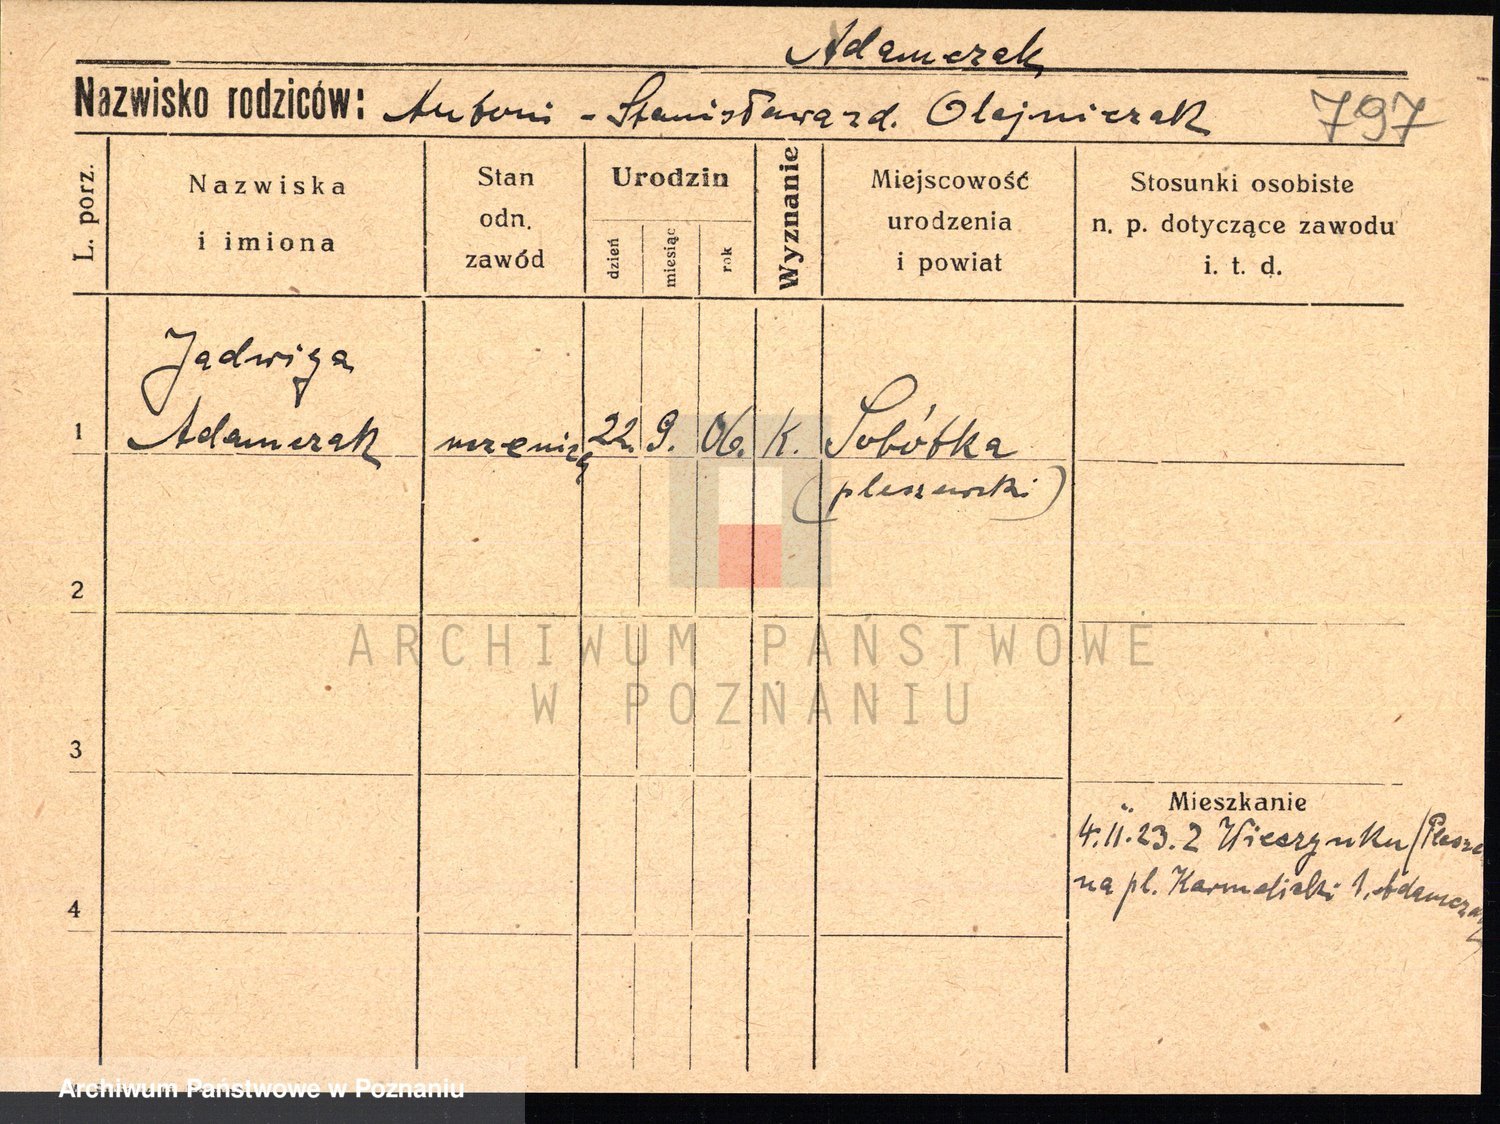 Adamczak
Nazwisko rodziców: Antoni - Stanisława zd. Olejniczak 797
L. porz.
Nazwiska
i imiona
Stan
odn.
zawód
Urodzin
dzień
miesiąc
rok
Wyznanie
Miejscowość
urodzenia
i powiat
Stosunki osobiste
n. p. dotyczące zawodu
i. t. d.
Jadwiga
1 Adamczak uczennica 22. 9. 06. K. Sobótka
(pleszewski)
2
ARCHIWUM PAŃSTWOWE
W POZNANIU
3
Mieszkanie
4.II.23. z Wieczynku /Plesze
na pl. Karmelicki 1, Adamczak
4
Archiwum Państwowe w Poznaniu